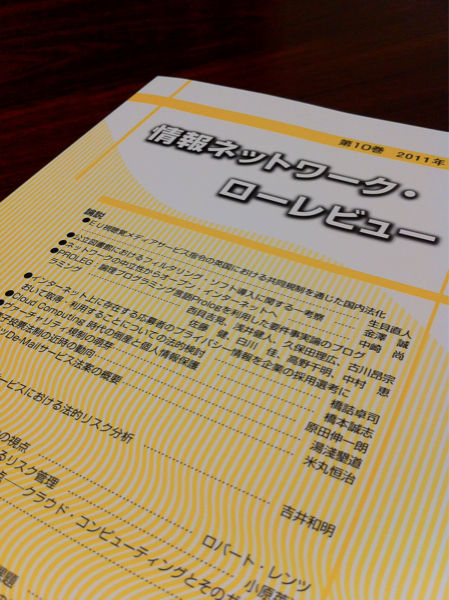 第10巻 2011年
情報ネットワーク・
ローレビュー
論説
●EU視聴覚メディアサービス指令の英国における共同規制を通じた国内法化
生貝直人
●公立図書館におけるフィルタリング・ソフト導入に関する一考察 金澤 誠
●ネットワークの中立性からオープン・インターネットへ 中崎 尚
●PROLEG:論理プログラミング言語Prologを利用した要件事実論のブログ
ラミング 西貝吉晃、浅井健人、久保田理広、古川昂宗
佐藤 健、白川 佳、高野千明、中村 恵
●インターネット上に存在する応募者のプライバシー情報を企業の採用選考に
おいて取得・利用することについての法的検討 橋詰卓司
●Cloud Computing 時代の商業と個人情報保護 橋本誠志
●ヴァーチャリティ情報の萌芽 原田伸一朗
子投票法制の近時の動向 湯淺墾道
De-Mailサービス法案の概要 米丸恒治
ービスにおける法的リスク分析
吉井和明
の視点
るリスク管理 ロバート・レンツ
点―クラウド・コンピューティングとその
小原
課題